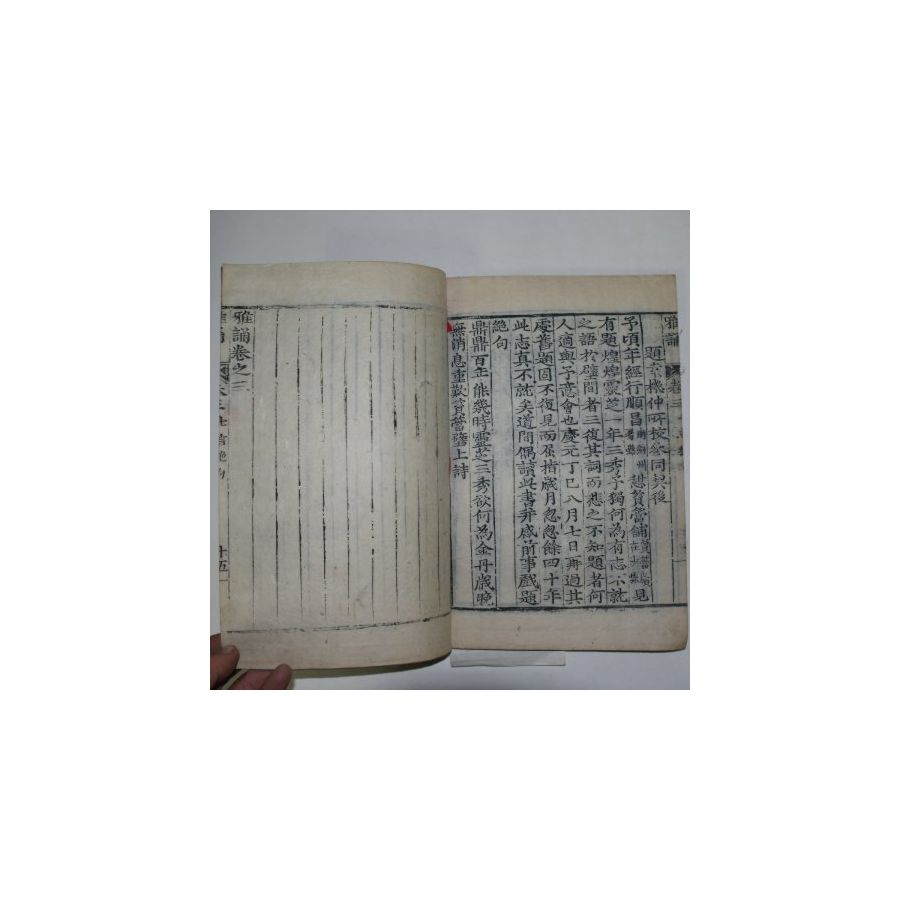 雅誦 卷三
題袁機仲所校參同契後
予頃年經行順昌憩篔簹鋪見
有題煌煌靈芝一年三秀予獨何為有志不就
之語於壁間者三復其詞而悲之不知題者何
人適與予意會也慶元丁巳八月七日再過其
處舊題固不復見而屈指歲月忽忽餘四十年
此志真不就矣道間偶讀此書并感前事戲題
絕句
鼎鼎百年能幾時靈芝三秀欲何為金丹歲晚
無消息重歎篔簹壁上詩
雅誦卷之三
十五